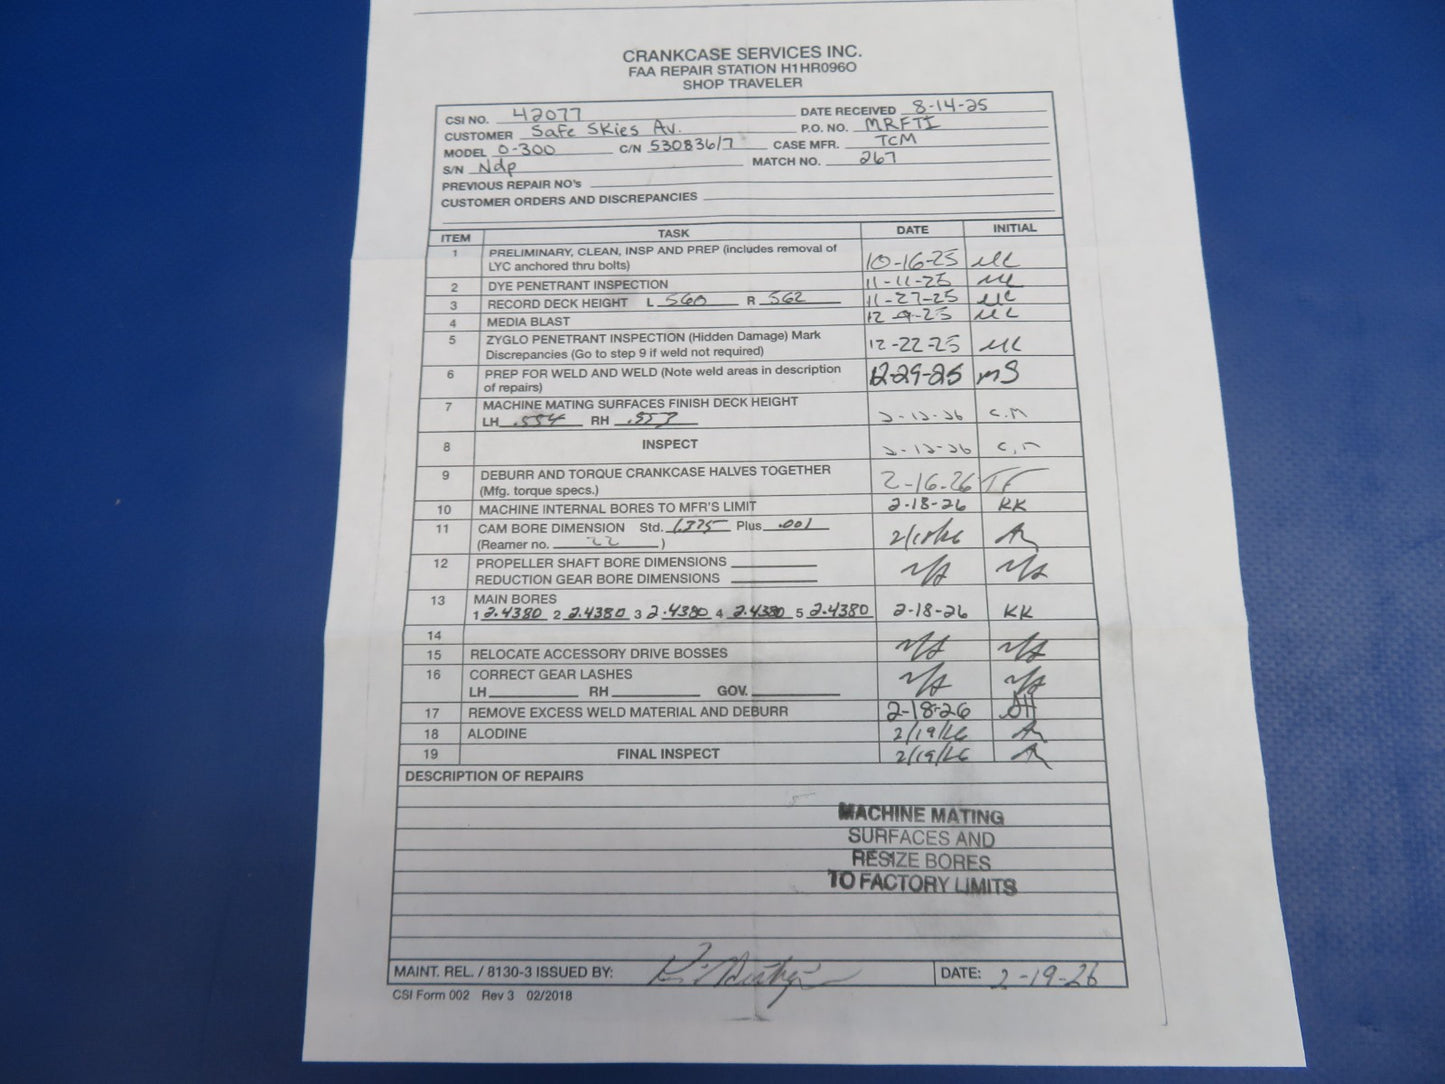 CRANKCASE SERVICES INC.
FAA REPAIR STATION H1HR096O
SHOP TRAVELER
CSI NO. 42077 DATE RECEIVED 8-14-25
CUSTOMER Safe Skies Av. P.O. NO. MRFTI
MODEL O-300 C/N 530836/7 CASE MFR. TCM
S/N Ndp MATCH NO. 267
PREVIOUS REPAIR NO's
CUSTOMER ORDERS AND DISCREPANCIES
ITEM TASK DATE INITIAL
1 PRELIMINARY, CLEAN, INSP AND PREP (includes removal of
LYC anchored thru bolts) 10-16-25 MC
2 DYE PENETRANT INSPECTION 11-11-25 MC
3 RECORD DECK HEIGHT L .560 R .562 11-27-25 MC
4 MEDIA BLAST 12-9-25 MC
5 ZYGLO PENETRANT INSPECTION (Hidden Damage) Mark
Discrepancies (Go to step 9 if weld not required) 12-22-25 MC
6 PREP FOR WELD AND WELD (Note weld areas in description
of repairs) 12-29-25 MS
7 MACHINE MATING SURFACES FINISH DECK HEIGHT
LH .554 RH .553 2-12-26 C.M
8 INSPECT 2-12-26 C.M
9 DEBURR AND TORQUE CRANKCASE HALVES TOGETHER
(Mfg. torque specs.) 2-16-26 TF
10 MACHINE INTERNAL BORES TO MFR'S LIMIT 2-18-26 KK
11 CAM BORE DIMENSION Std. 1.375 Plus .001
(Reamer no. 22) 2/18/26
12 PROPELLER SHAFT BORE DIMENSIONS N/A N/A
REDUCTION GEAR BORE DIMENSIONS
13 MAIN BORES
1 2.4380 2 2.4380 3 2.4380 4 2.4380 5 2.4380 2-18-26 KK
14
15 RELOCATE ACCESSORY DRIVE BOSSES N/A N/A
16 CORRECT GEAR LASHES
LH RH GOV. N/A N/A
17 REMOVE EXCESS WELD MATERIAL AND DEBURR 2-18-26 DH
18 ALODINE 2/19/26
19 FINAL INSPECT 2/19/26
DESCRIPTION OF REPAIRS
MACHINE MATING
SURFACES AND
RESIZE BORES
TO FACTORY LIMITS
MAINT. REL. / 8130-3 ISSUED BY: DATE: 2-19-26
CSI Form 002 Rev 3 02/2018